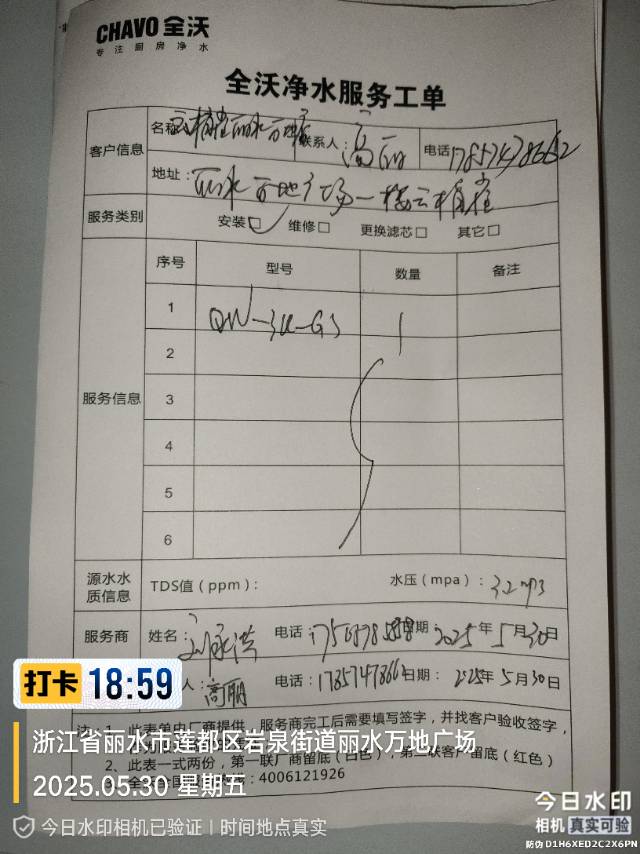 CHAVO 全沃
专注厨房净水
全沃净水服务工单
客户信息
名称 丽水万地 联系人: 高丽 电话 17857478662
地址: 丽水万地广场一楼云
服务类别 安装□ 维修□ 更换滤芯□ 其它□
服务信息
序号 型号 数量 备注
1 1
2
3
4
5
6
源水水质信息
TDS值(ppm): 水压(mpa):
服务商 姓名: 刘永洪 电话: 期 2025年5月30日
人: 高丽 电话: 日期: 2025年5月30日
打卡 18:59
1、此表单由厂商提供,服务商完工后需要填写签字,并找客户验收签字,
浙江省丽水市莲都区岩泉街道丽水万地广场
2、此表一式两份,第一联厂商留底(白色),第二联客户留底(红色)
2025.05.30 星期五
4006121926
今日水印相机已验证 | 时间地点真实
今日水印
相机 真实可验
防伪 D1H6XED2C2X6PN